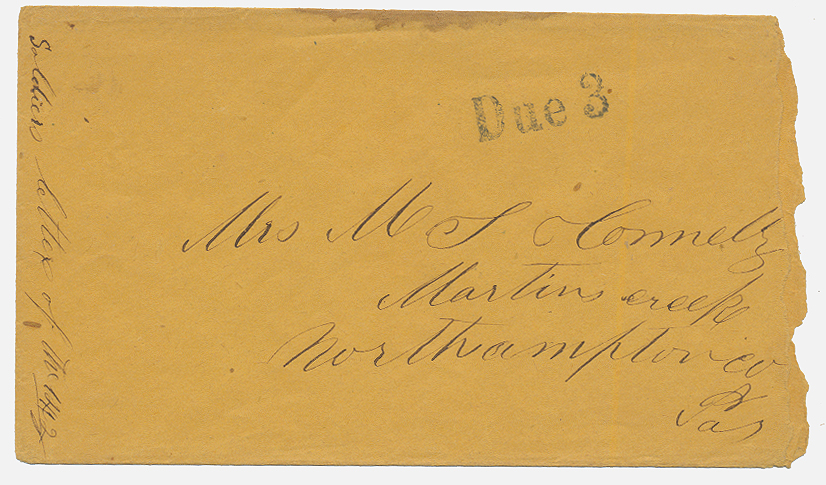 Soldiers letter of
Due 3
Mrs M S Connelly
Martins creek
Northampton co
Pa